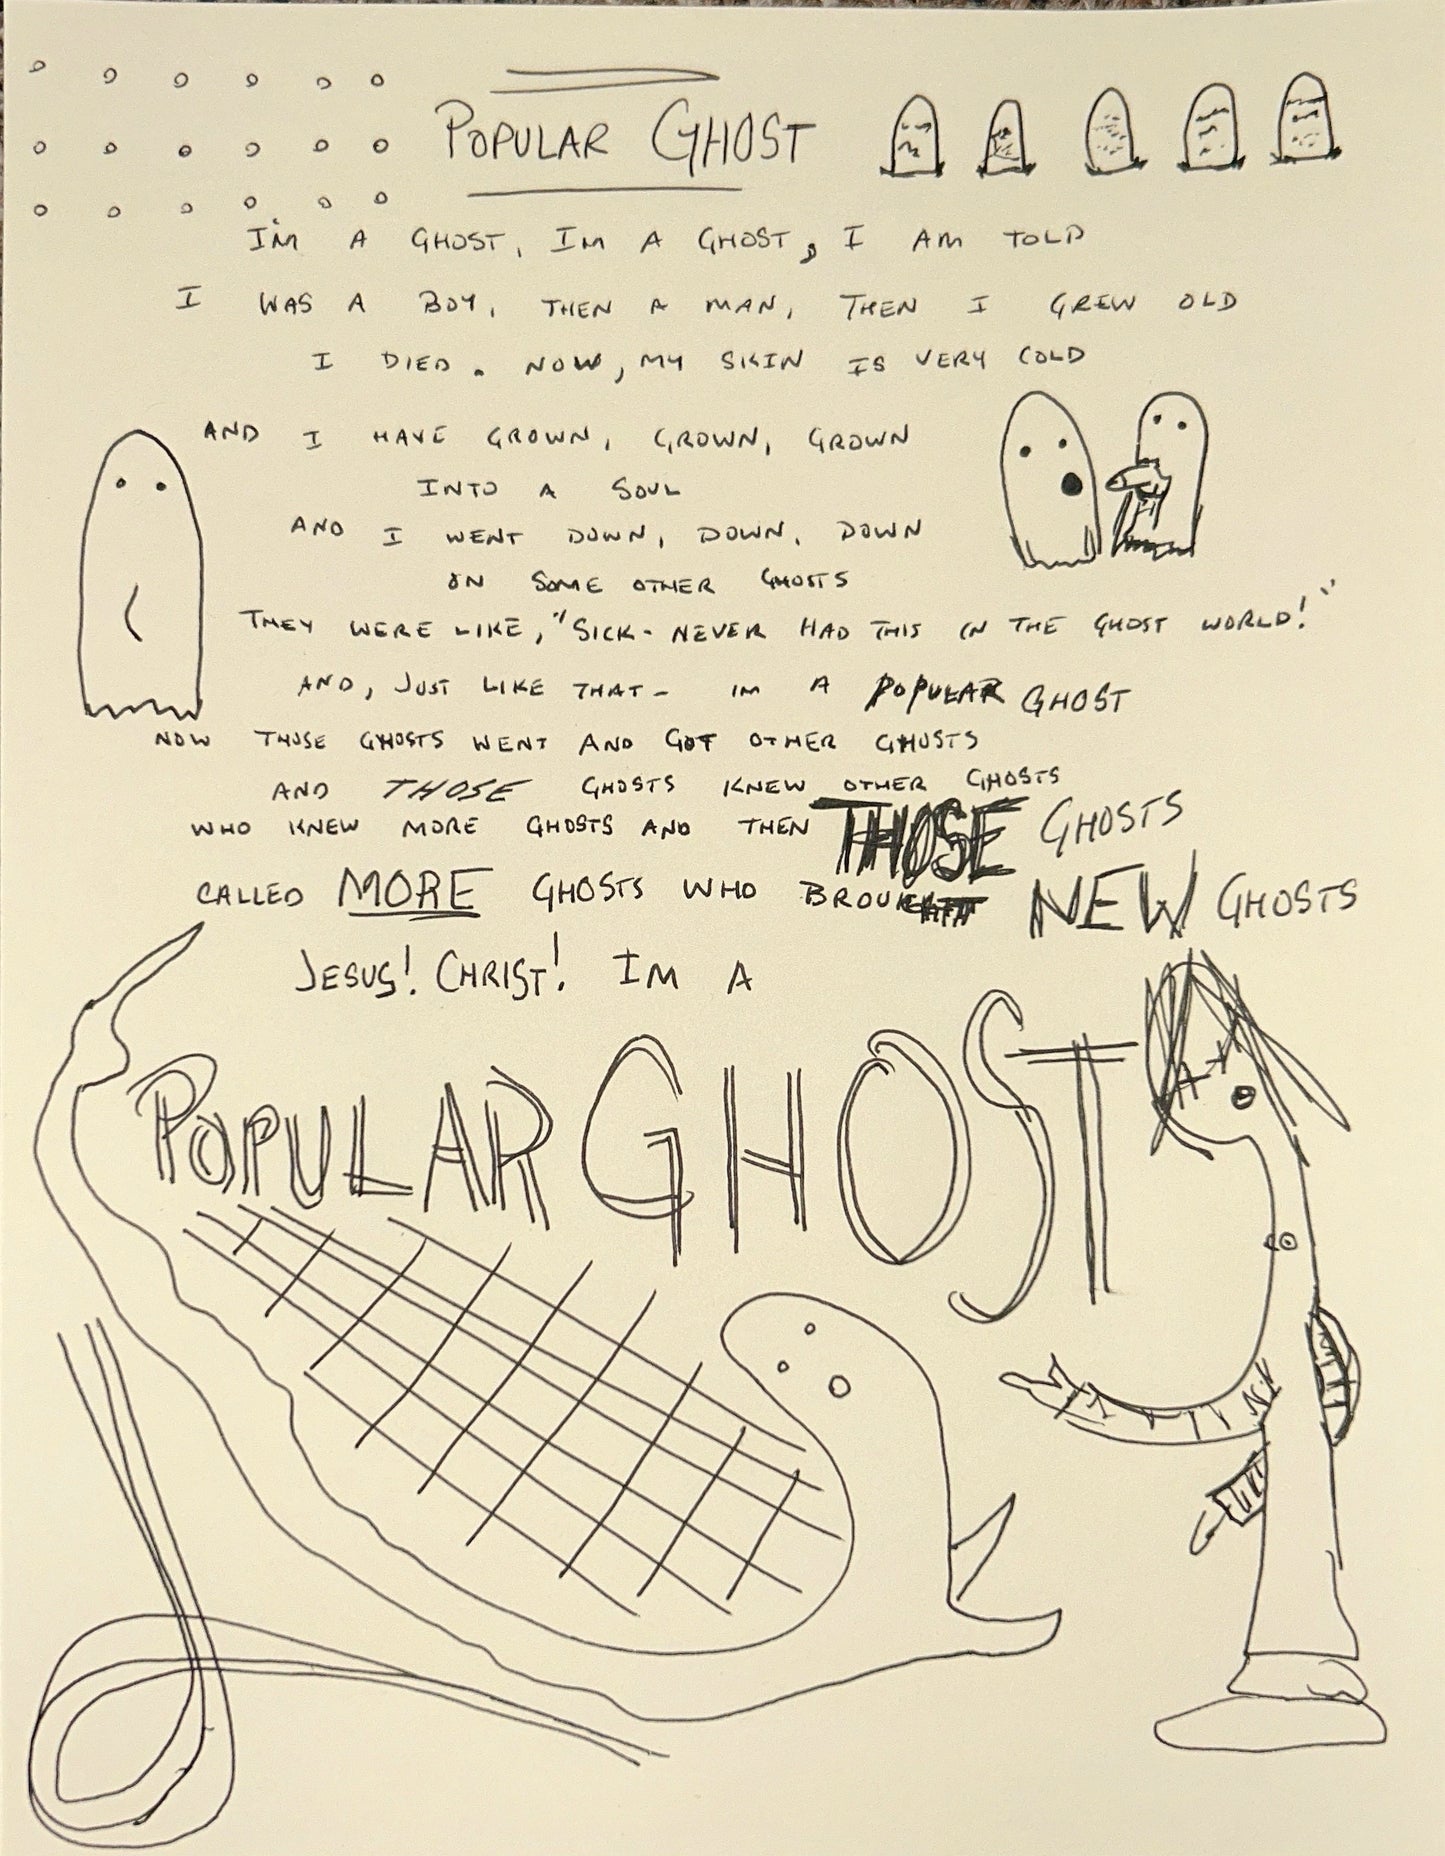 POPULAR GHOST
I'M A GHOST, IM A GHOST, I AM TOLD
I WAS A BOY, THEN A MAN, THEN I GREW OLD
I DIED. NOW, MY SKIN IS VERY COLD
AND I HAVE GROWN, GROWN, GROWN
INTO A SOUL
AND I WENT DOWN, DOWN, DOWN
ON SOME OTHER GHOSTS
THEY WERE LIKE, "SICK- NEVER HAD THIS IN THE GHOST WORLD!"
AND, JUST LIKE THAT- IM A POPULAR GHOST
NOW THOSE GHOSTS WENT AND GOT OTHER GHOSTS
AND THOSE GHOSTS KNEW OTHER GHOSTS
WHO KNEW MORE GHOSTS AND THEN THOSE GHOSTS
CALLED MORE GHOSTS WHO BROUGHT NEW GHOSTS
JESUS! CHRIST! IM A
POPULAR GHOST